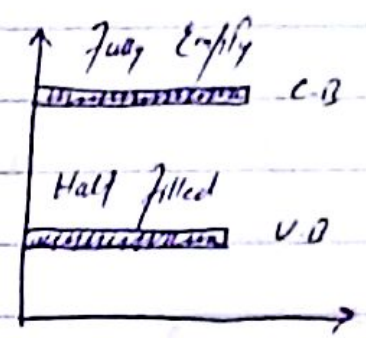 Fully Empty
C.B
Half filled
V.B